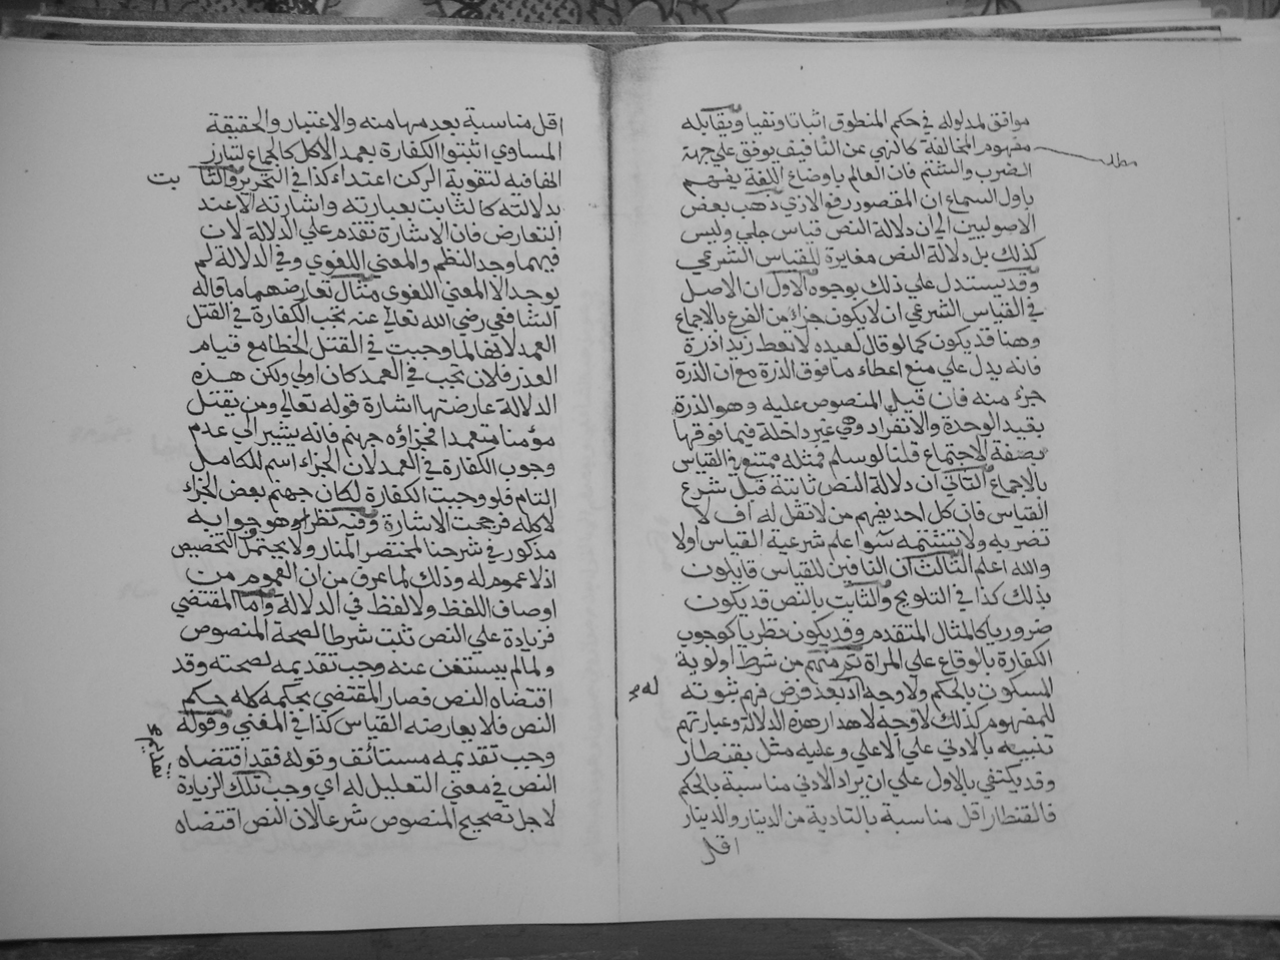 موافق لمدلوله في حكم المنطوق اثباتا ونفيا ويقابله
مفهوم المخالفة كالنهي عن التأفيف يوقف علي جهة
مطلب
الضرب والشتم فان العالم باوضاع اللغة يفهم
باول السماع ان المقصود رفع الاذي ذهب بعض
الاصوليين الي ان دلالة النص قياس جلي وليس
كذلك بل دلالة النص مغايرة للقياس الشرعي
وقد يستدل علي ذلك بوجوه الاول ان الاصل
في القياس الشرعي ان لا يكون جزأ من الفرع بالاجماع
وهنا قد يكون كما لو قال لعبده لا تعط زيدا ذرة
فانه يدل علي منع اعطاء ما فوق الذرة مع ان الذرة
جزء منه فان قيل المنصوص عليه وهو الذرة
بقيد الوحدة والانفراد وهي غير داخلة فيما فوقها
بصفة الاجتماع قلنا لو سلم فمثله ممتنع في القياس
بالاجماع الثاني ان دلالة النص ثابتة قبل شرع
القياس فان كل احد يفهم من لا تقل له اف لا
تضربه ولا تشتمه سوا علم شرعية القياس اولا
والله اعلم الثالث ان النافين للقياس قايلون
بذلك كذا في التلويح والثابت بالنص قد يكون
ضروريا كالمثال المتقدم وقد يكون نظريا كوجوب
الكفارة بالوقاع علي المراة ثم منهم من شرط اولوية
المسكون بالحكم ولا وجه اذ بعد فرض فهم ثبوته
له
للمفهوم كذلك لا وجه لاهدار هذه الدلالة وعبارتهم
تنبيه بالادني علي الاعلي وعليه مثل بقنطار
وقد يكتفي بالاول علي ان يراد الادني مناسبة بالحكم
فالقنطار اقل مناسبة بالتادية من الدينار والدينار
اقل
اقل مناسبة بعدمها منه والاعتبار والحقيقة
المساوي اثبتوا الكفارة بعمد الاكل كالجماع لتبارز
بت
لتقوية الركن اعتداء كذا في التحرير والثا
بدلالته كالثابت بعبارته واشارته الا عند
التعارض فان الاشارة تقدم علي الدلالة لان
فيهما وجد النظم والمعني اللغوي وفي الدلالة لم
يوجد الا المعني اللغوي مثال تعارضهما ما قاله
الشافعي رضي الله تعالي عنه تجب الكفارة في القتل
العمد لانها لما وجبت في القتل الخطا مع قيام
العذر فلان تجب في العمد كان اولي ولكن هذه
الدلالة عارضتها اشارة قوله تعالي ومن يقتل
مؤمنا متعمدا فجزاؤه جهنم فانه يشير الي عدم
وجوب الكفارة في العمد لان الجزاء اسم للكامل
التام فلو وجبت الكفارة لكان جهنم بعض الجزاء
لا كله فرجحت الاشارة وفيه نظر وهو جوابه
مذكور في شرحنا لمختصر المنار ولا يحتمل التخصيص
اذ لا عموم له وذلك لما عرف من ان العموم من
اوصاف اللفظ ولا لفظ في الدلالة واما المقتضي
فزيادة علي النص ثبت شرطا لصحة المنصوص
ولما لم يستغن عنه وجب تقديمه لصحته وقد
اقتضاه النص فصار المقتضي بحكمه كله حكم
النص فلا يعارضه القياس كذا في المغني وقوله
وجب تقديمه مستأنف وقوله فقد اقتضاه
النص في معني التعليل له اي وجب تلك الزيادة
لاجل تصحيح المنصوص شرعا لان النص اقتضاه